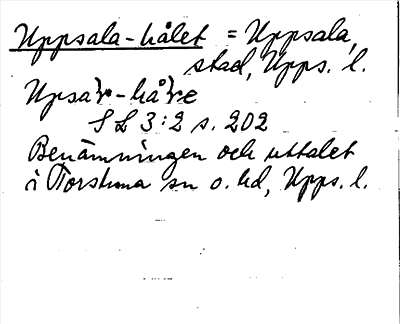 Uppsala-hålet = Uppsala,
stad, Upps. l.
Upsaɽ-håɽe
SL 3:2 s. 202
Benämningen och uttalet
i Torstuna sn o. hd, Upps. l.